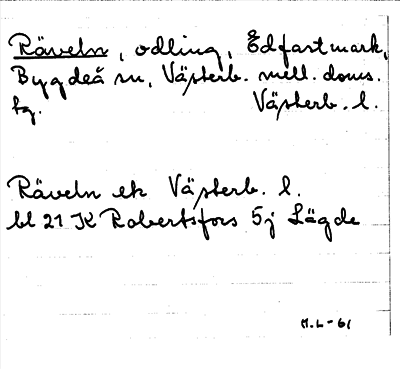 Räveln, odling, Edfastmark,
Bygdeå sn, Västerb. mell. doms.
tg. Västerb. l.
Räveln ek Västerb. l.
bl 21 K Robertsfors 5j Lägde
M.L-61